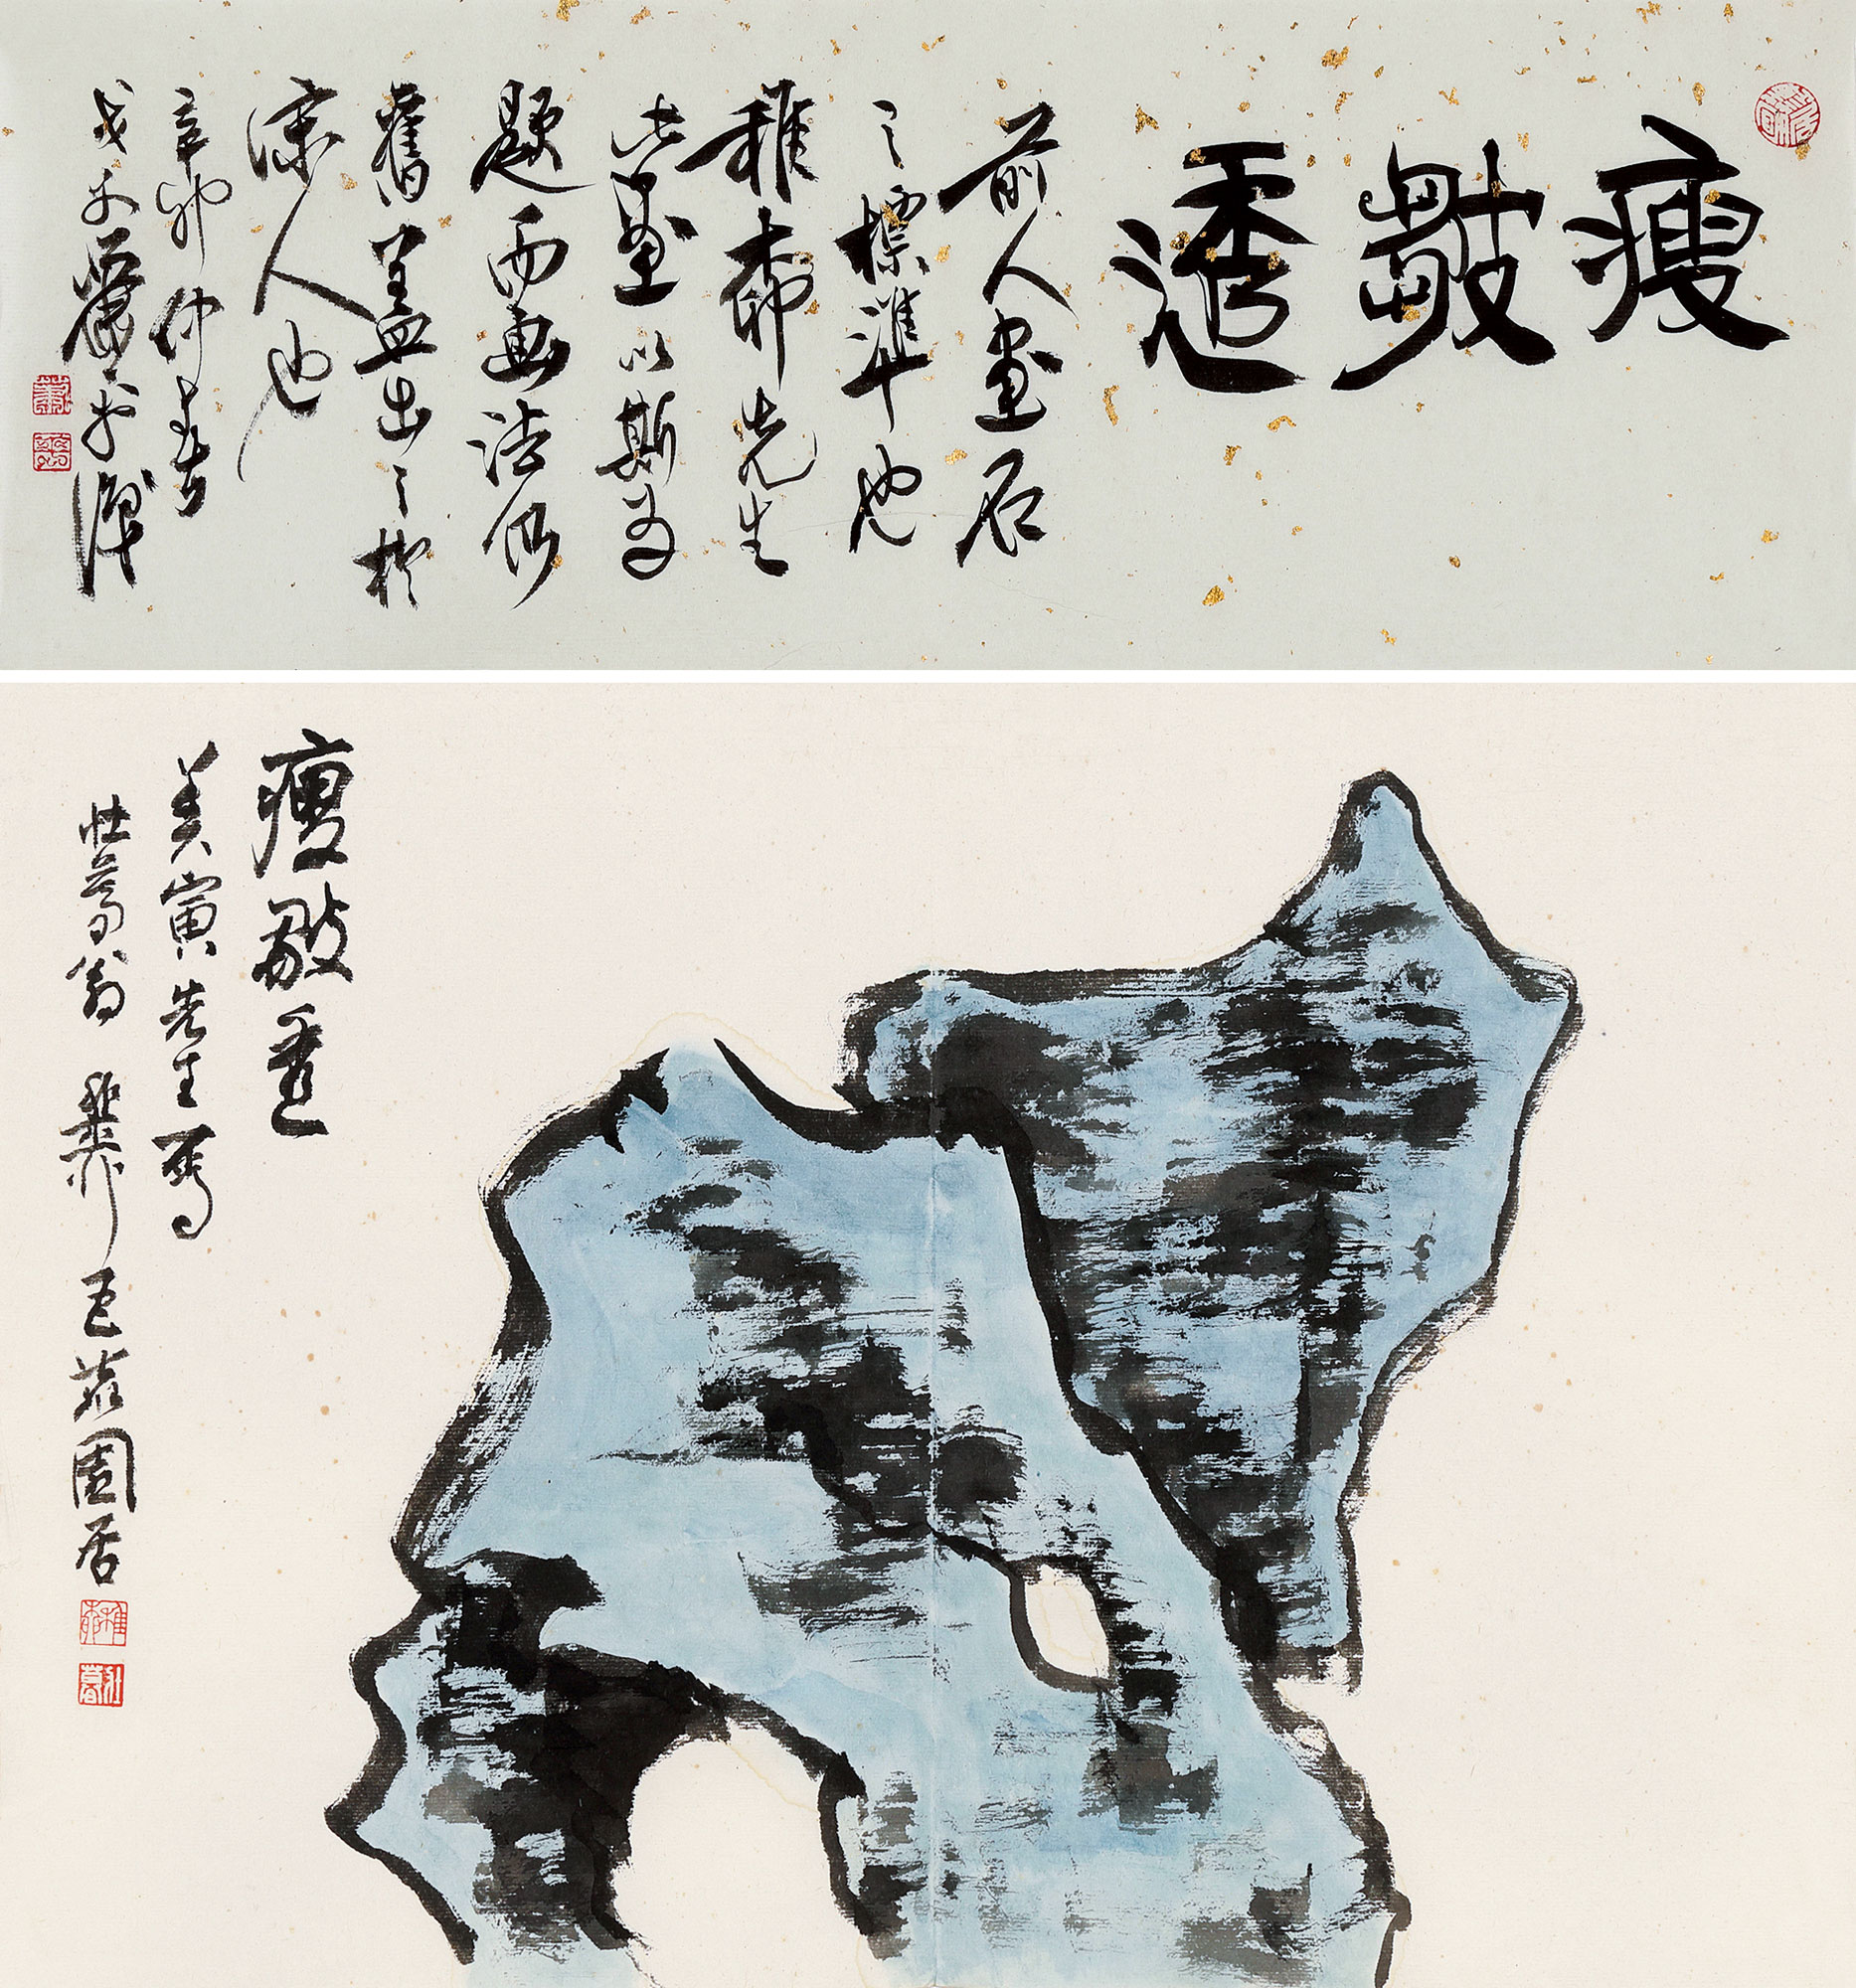 瘦皺透
前人畫石
之標準也
稚柳先生
此畫以斯為
題而畫法仍
舊蓋出之於
人也
辛卯仲春
戈父蕭平識
瘦皺透
美寅先生寫
壯暮翁稚柳巨園居
稚柳
壯暮